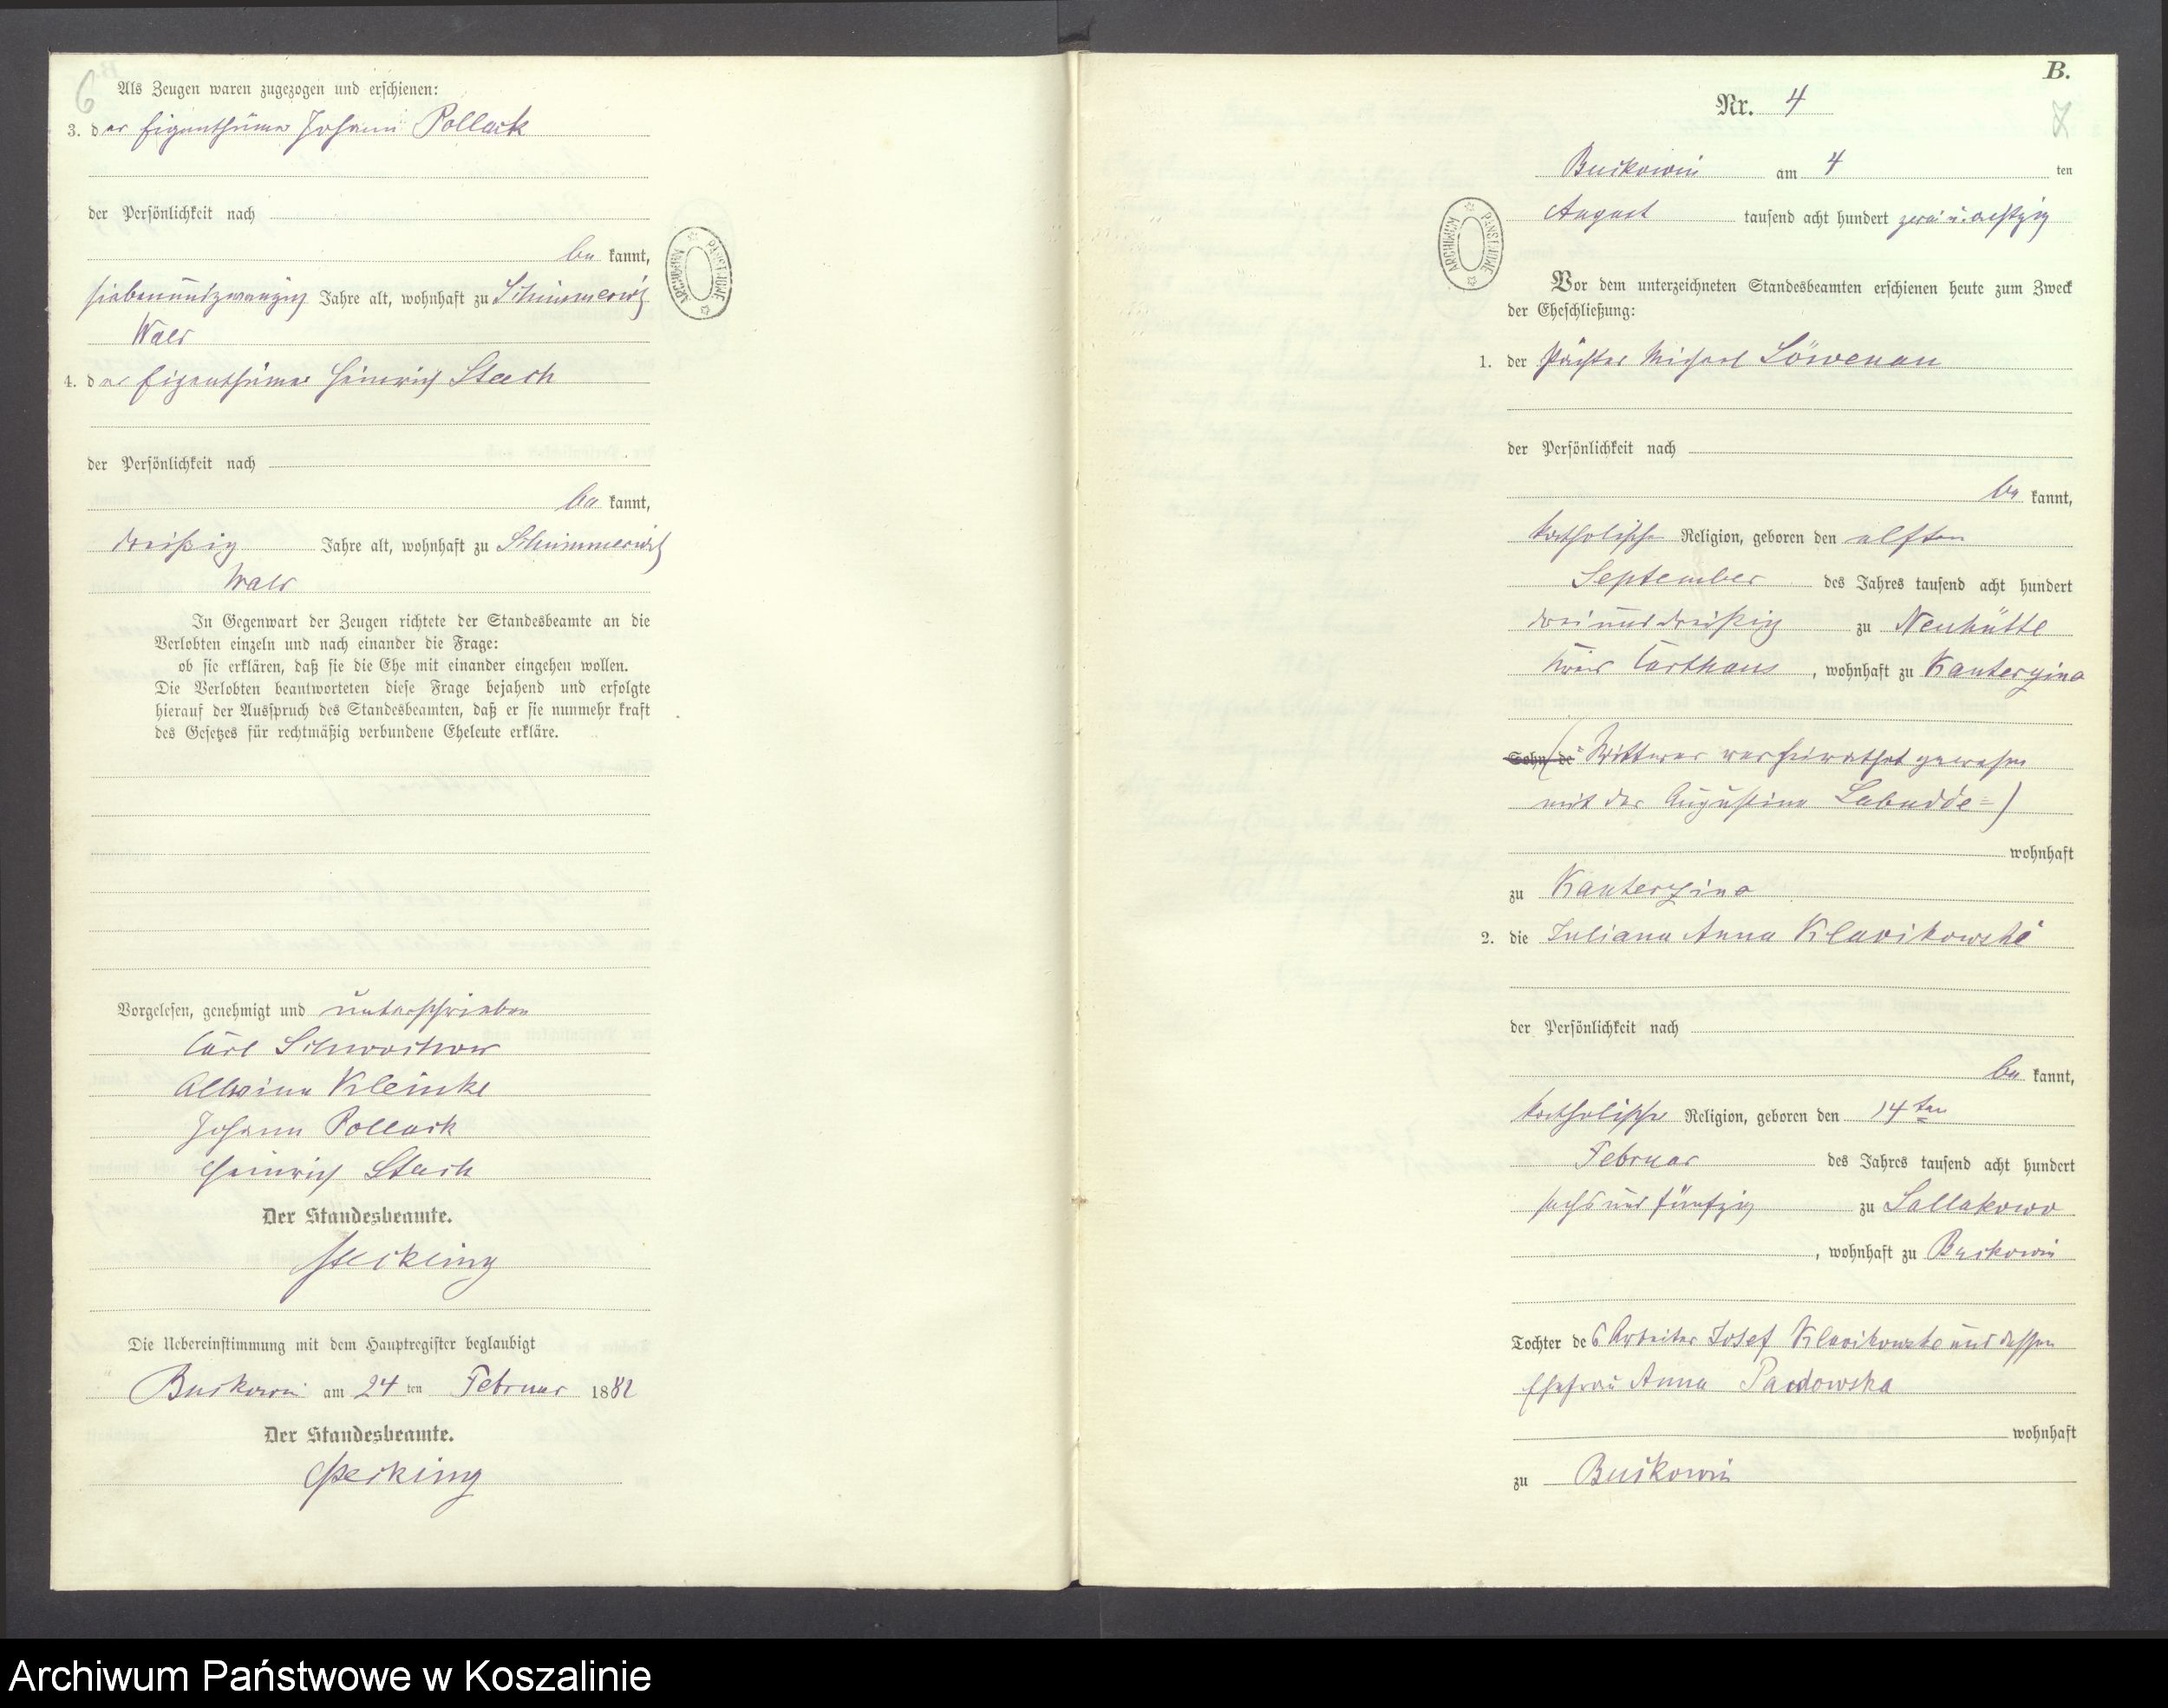 6
Als Zeugen waren zugezogen und erschienen:
3. der Eigenthümer Johann Pollack
der Persönlichkeit nach
be kannt,
siebenundzwanzig Jahre alt, wohnhaft zu Schimmerwitz
Wald
4. der Eigenthümer Heinrich Stach
der Persönlichkeit nach
be kannt,
dreißig Jahre alt, wohnhaft zu Schimmerwitz
Wald
In Gegenwart der Zeugen richtete der Standesbeamte an die
Verlobten einzeln und nach einander die Frage:
ob sie erklären, daß sie die Ehe mit einander eingehen wollen.
Die Verlobten beantworteten diese Frage bejahend und erfolgte
hierauf der Ausspruch des Standesbeamten, daß er sie nunmehr kraft
des Gesetzes für rechtmäßig verbundene Eheleute erkläre.
Vorgelesen, genehmigt und unterschrieben
Carl
Allwine Kleinke
Johann Pollack
Heinrich Stach
Der Standesbeamte.
Die Uebereinstimmung mit dem Hauptregister beglaubigt
Buckowin am 24 ten Februar 1882
Der Standesbeamte.
ARCHIWUM PAŃSTWOWE
B.
Nr. 4
7
Buckowin am 4 ten
August tausend acht hundert zwei u. achtzig
ARCHIWUM PAŃSTWOWE
Vor dem unterzeichneten Standesbeamten erschienen heute zum Zweck
der Eheschließung:
1. der Pächter Michael Löwenau
der Persönlichkeit nach
be kannt,
katholischer Religion, geboren den elften
September des Jahres tausend acht hundert
dreiunddreißig zu Neuhütte
Kreis Carthaus, wohnhaft zu Kanterzino
Sohn de (Wittwer verheirathet gewesen
mit der Augustine Labudde)
wohnhaft
zu Kanterzino
2. die Juliana Anna Klavikowski
der Persönlichkeit nach
be kannt,
katholischer Religion, geboren den 14ten
Februar des Jahres tausend acht hundert
sechsundfünfzig zu Sallakowo
, wohnhaft zu Buckowin
Tochter des Arbeiter Josef Klavikowski und dessen
Ehefrau Anna
wohnhaft
zu Buckowin
Archiwum Państwowe w Koszalinie